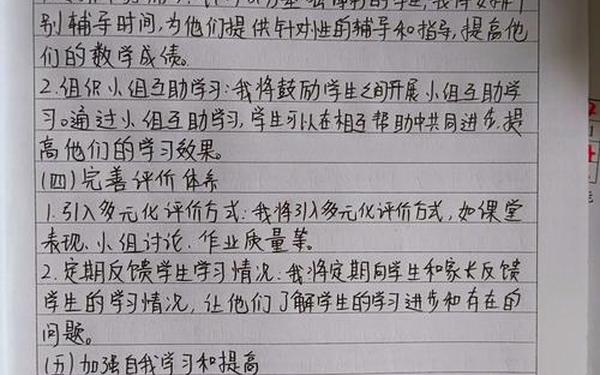 别辅导时间,为他们提供针对性的辅导和指导,提高他
们的数学成绩。
2.组织小组互助学习:我将鼓励学生之间开展小组互助学
习。通过小组互助学习,学生可以在相互帮助中共同进步,提
高他们的学习效果。
(四)完善评价体系
1.引入多元化评价方式:我将引入多元化评价方式,如课堂
表现、小组讨论、作业质量等。
2.定期反馈学生学习情况:我将定期向学生和家长反馈
学生的学习情况,让他们了解学生的学习进步和存在的
问题。
(五)加强自我学习和提高